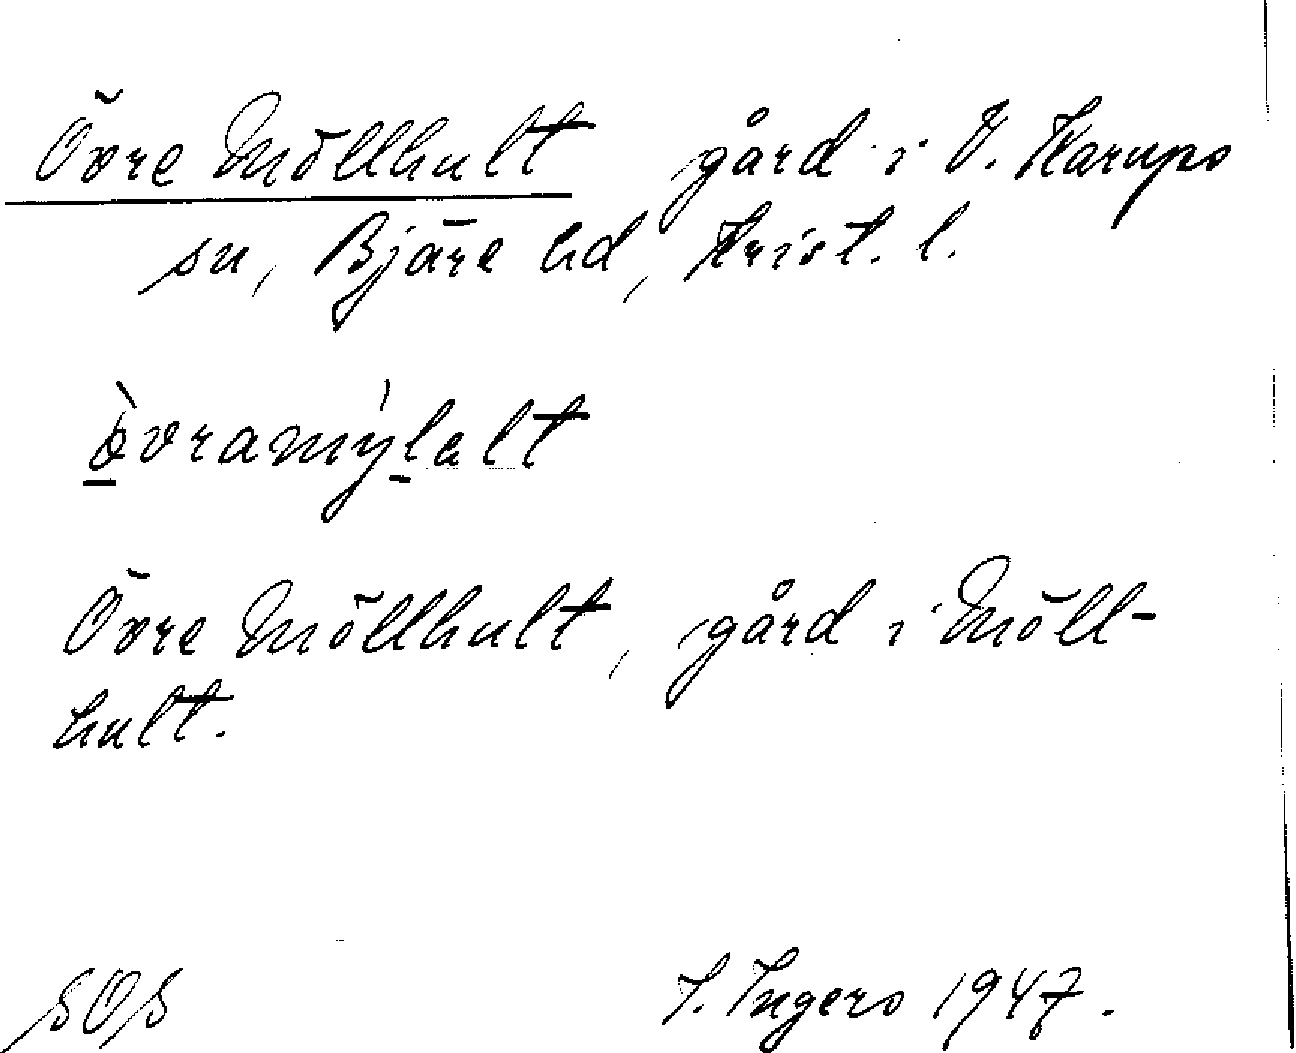 Övre Möllhult gård i V. Karups
sn, Bjäre hd, Krist. l.
ò̱vramýḻalt
Övre Möllhult, gård i Möll-
hult.
SOS I. Ingers 1947.